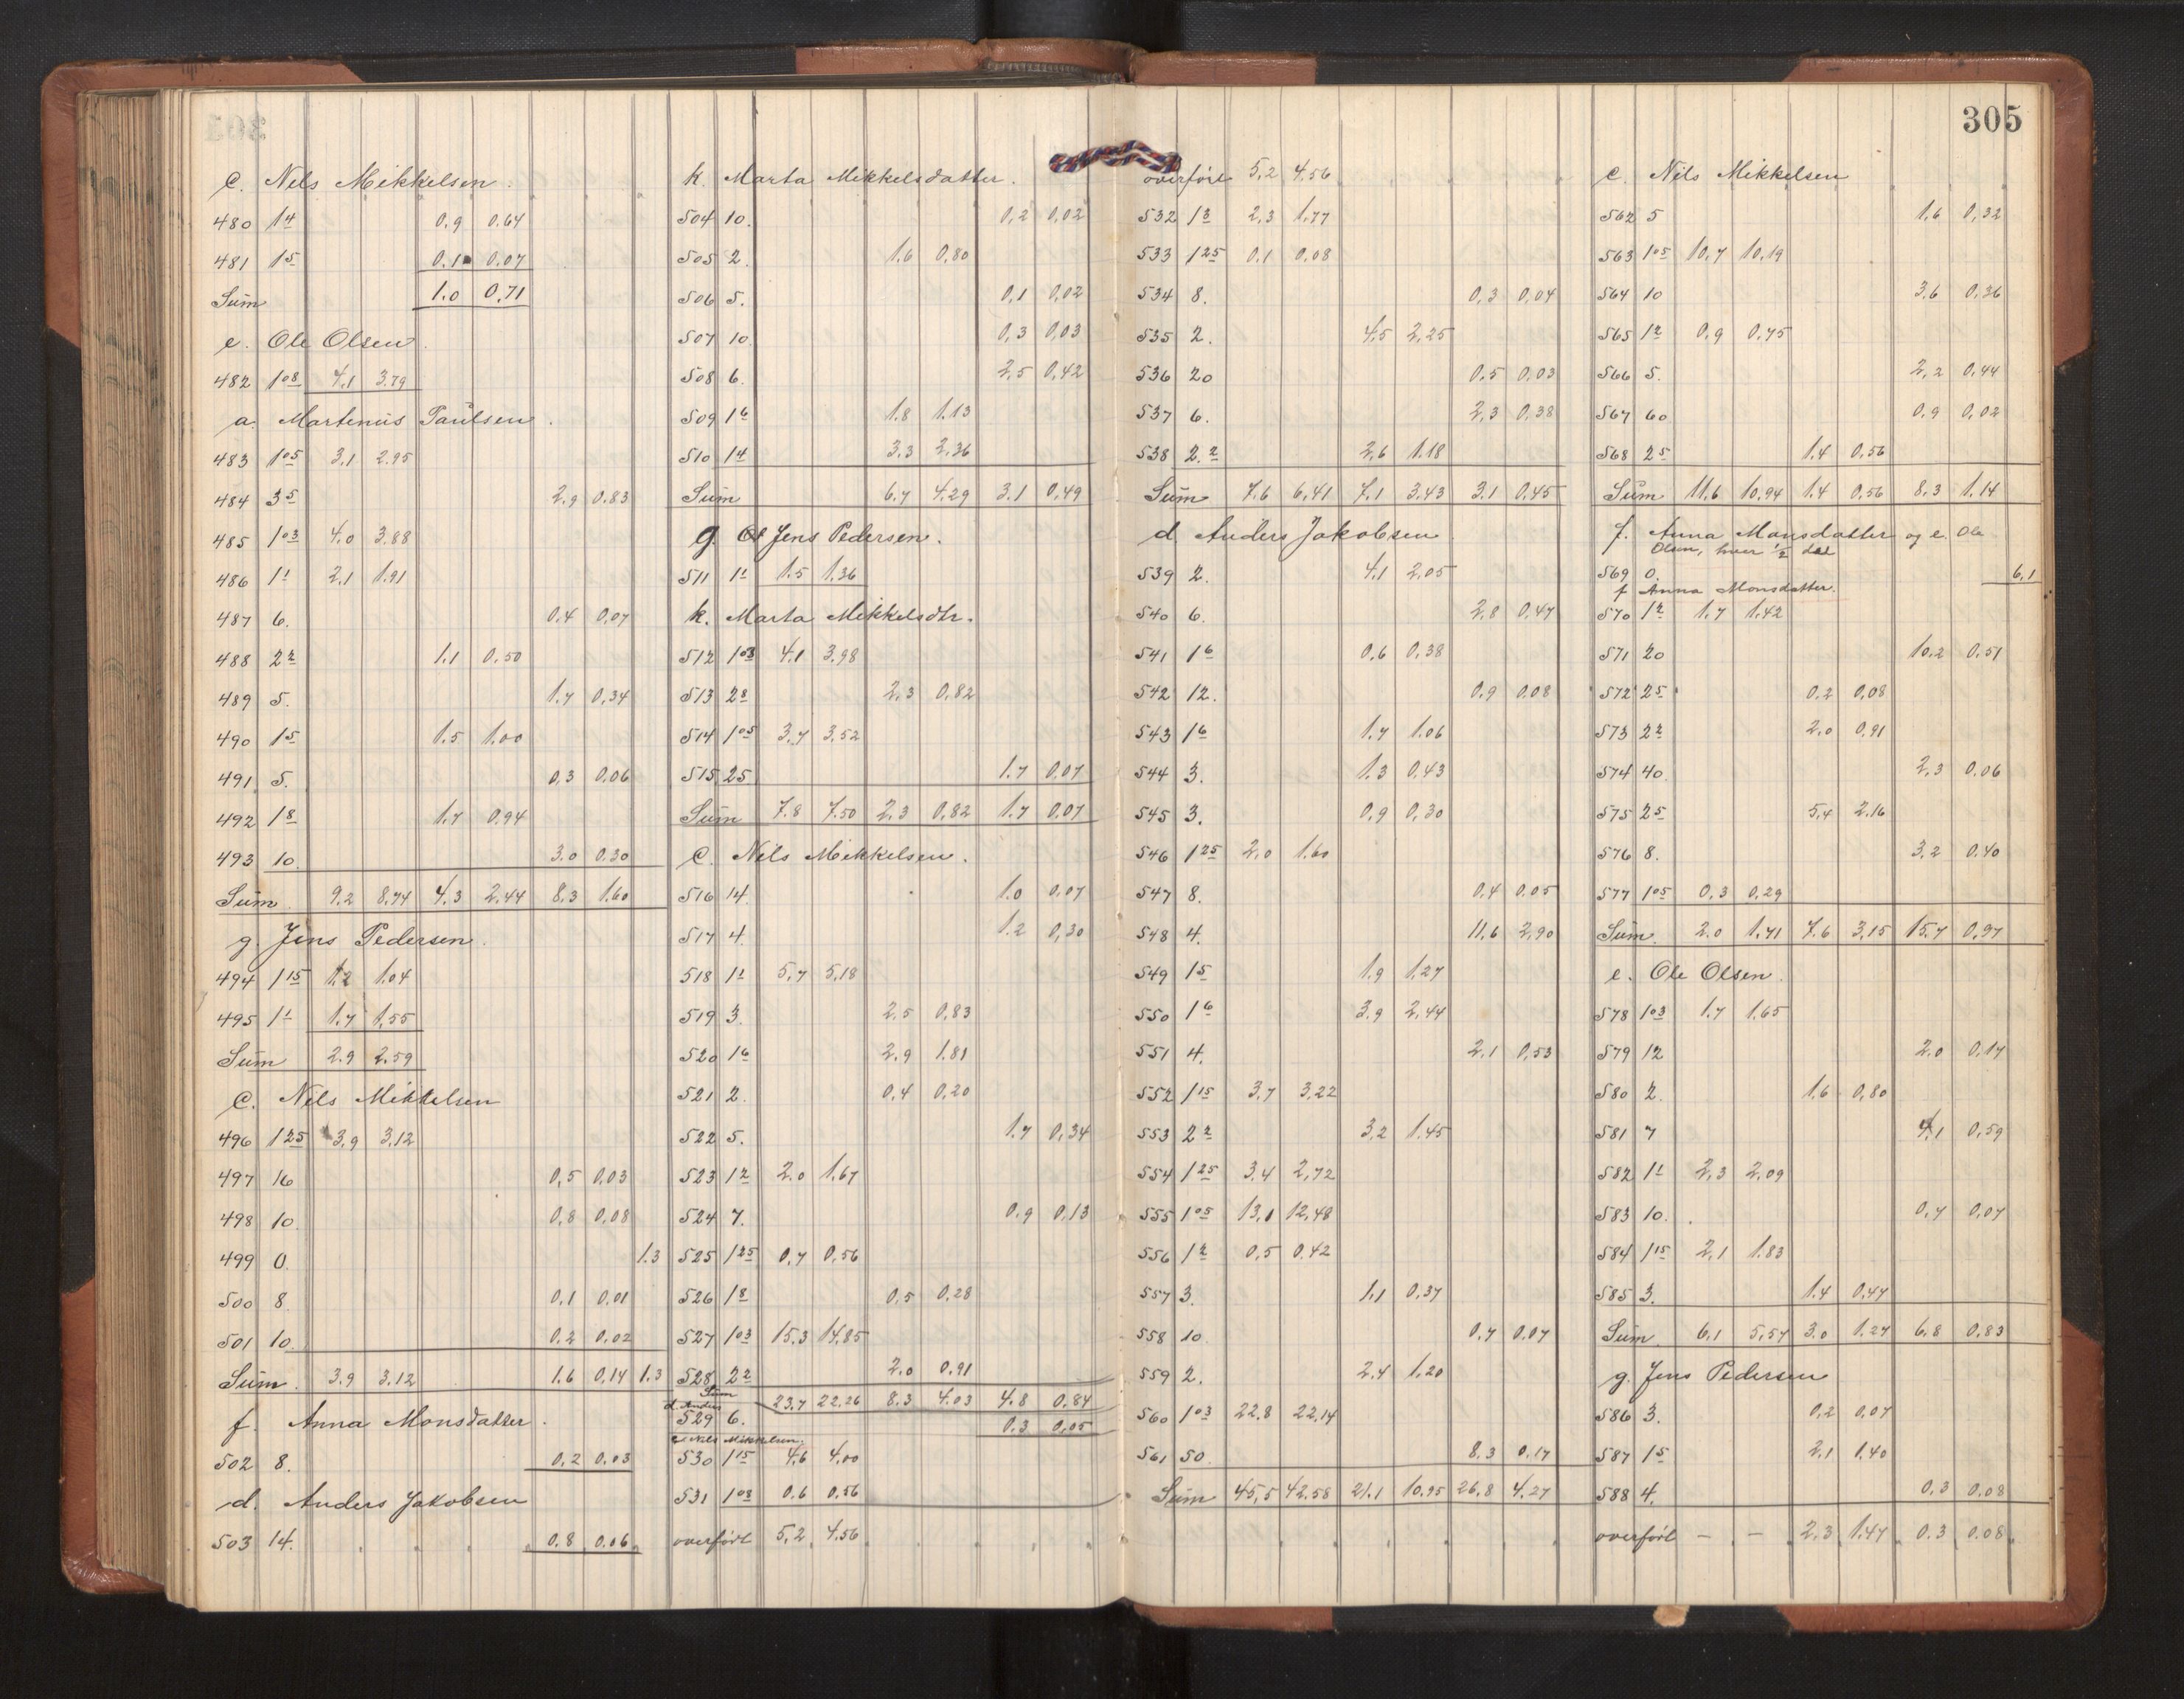 305
C. Nils Mikkelsen.
480 1.4 0.9 0.64
481 1.5 0.1 0.07
Sum 1.0 0.71
e. Ole Olsen.
482 1.08 4.1 3.79
a. Martinus Paulsen.
483 1.05 3.1 2.95
484 3.5 2.9 0.83
485 1.03 4.0 3.88
486 1.1 2.1 1.91
487 6. 0.4 0.07
488 2.2 1.1 0.50
489 5. 1.7 0.34
490 1.5 1.5 1.00
491 5. 0.3 0.06
492 1.8 1.7 0.94
493 10. 3.0 0.30
Sum 9.2 8.74 4.3 2.44 8.3 1.60
g. Jens Pedersen.
494 1.15 1.2 1.04
495 1.1 1.7 1.55
Sum 2.9 2.59
C. Nils Mikkelsen
496 1.25 3.9 3.12
497 16 0.5 0.03
498 10. 0.8 0.08
499 0. 1.3
500 8. 0.1 0.01
501 10. 0.2 0.02
Sum. 3.9 3.12 1.6 0.14 1.3
f. Anna Monsdatter.
502 8. 0.2 0.03
d. Anders Jakobsen
503 14. 0.8 0.06
k. Marta Mikkelsdatter.
504 10. 0.2 0.02
505 2. 1.6 0.80
506 5. 0.1 0.02
507 10 0.3 0.03
508 6. 2.5 0.42
509 1.6 1.8 1.13
510 1.4 3.3 2.36
Sum 6.7 4.29 3.1 0.49
g. Jens Pedersen.
511 1.1 1.5 1.36
k. Marta Mikkelsdtr.
512 1.03 4.1 3.98
513 2.8 2.3 0.82
514 1.05 3.7 3.52
515 25. 1.7 0.07
Sum 7.8 7.50 2.3 0.82 1.7 0.07
C. Nils Mikkelsen.
516 14. 1.0 0.07
517 4. 1.2 0.30
518 1.1 5.7 5.18
519 3. 2.5 0.83
520 1.6 2.9 1.81
521 2. 0.4 0.20
522 5. 1.7 0.34
523 1.2 2.0 1.67
524 7. 0.9 0.13
525 1.25 0.7 0.56
526 1.8 0.5 0.28
527 1.03 15.3 14.85
528 2.2 2.0 0.91
Sum 23.7 22.26 8.3 4.03 4.8 0.84
d. Anders
529 6. 0.3 0.05
c. Nils Mikkelsen.
530 1.15 4.6 4.00
531 1.08 0.6 0.56
overført 5.2 4.56
overført 5.2 4.56
532 1.3 2.3 1.77
533 1.25 0.1 0.08
534 8. 0.3 0.04
535 2. 4.5 2.25
536 20 0.5 0.03
537 6. 2.3 0.38
538 2.2 2.6 1.18
Sum 7.6 6.41 7.1 3.43 3.1 0.45
d. Anders Jakobsen
539 2. 4.1 2.05
540 6. 2.8 0.47
541 1.6 0.6 0.38
542 12. 0.9 0.08
543 1.6 1.7 1.06
544 3. 1.3 0.43
545 3. 0.9 0.30
546 1.25 2.0 1.60
547 8. 0.4 0.05
548 4. 11.6 2.90
549 1.5 1.9 1.27
550 1.6 3.9 2.44
551 4. 2.1 0.53
552 1.15 3.7 3.22
553 2.2 3.2 1.45
554 1.25 3.4 2.72
555 1.05 13.1 12.48
556 1.2 0.5 0.42
557 3. 1.1 0.37
558 10. 0.7 0.07
559 2. 2.4 1.20
560 1.03 22.8 22.14
561 50. 8.3 0.17
Sum 45.5 42.58 21.1 10.95 26.8 4.27
C. Nils Mikkelsen
562 5 1.6 0.32
563 1.05 10.7 10.19
564 10 3.6 0.36
565 1.2 0.9 0.75
566 5. 2.2 0.44
567 60. 0.9 0.02
568 2.5 1.4 0.56
Sum 11.6 10.94 1.4 0.56 8.3 1.14
f. Anna Monsdatter og e. Ole
Olsen, hver 1/2 del
569 0. 6.1
f Anna Monsdatter.
570 1.2 1.7 1.42
571 20 10.2 0.51
572 2.5 0.2 0.08
573 2.2 2.0 0.91
574 40. 2.3 0.06
575 2.5 5.4 2.16
576 8. 3.2 0.40
577 1.05 0.3 0.29
Sum. 2.0 1.71 7.6 3.15 15.7 0.97
e. Ole Olsen.
578 1.03 1.7 1.65
579 12 2.0 0.17
580 2. 1.6 0.80
581 7 4.1 0.59
582 1.1 2.3 2.09
583 10. 0.7 0.07
584 1.15 2.1 1.83
585 3. 1.4 0.47
Sum. 6.1 5.57 3.0 1.27 6.8 0.83
g. Jens Pedersen
586 3. 0.2 0.07
587 1.5 2.1 1.40
588 4. 0.3 0.08
overført – – 2.3 1.47 0.3 0.08